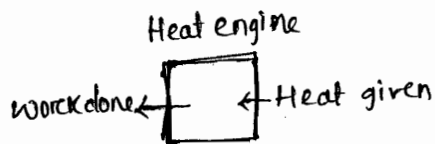 Heat engine
worckdone
Heat given